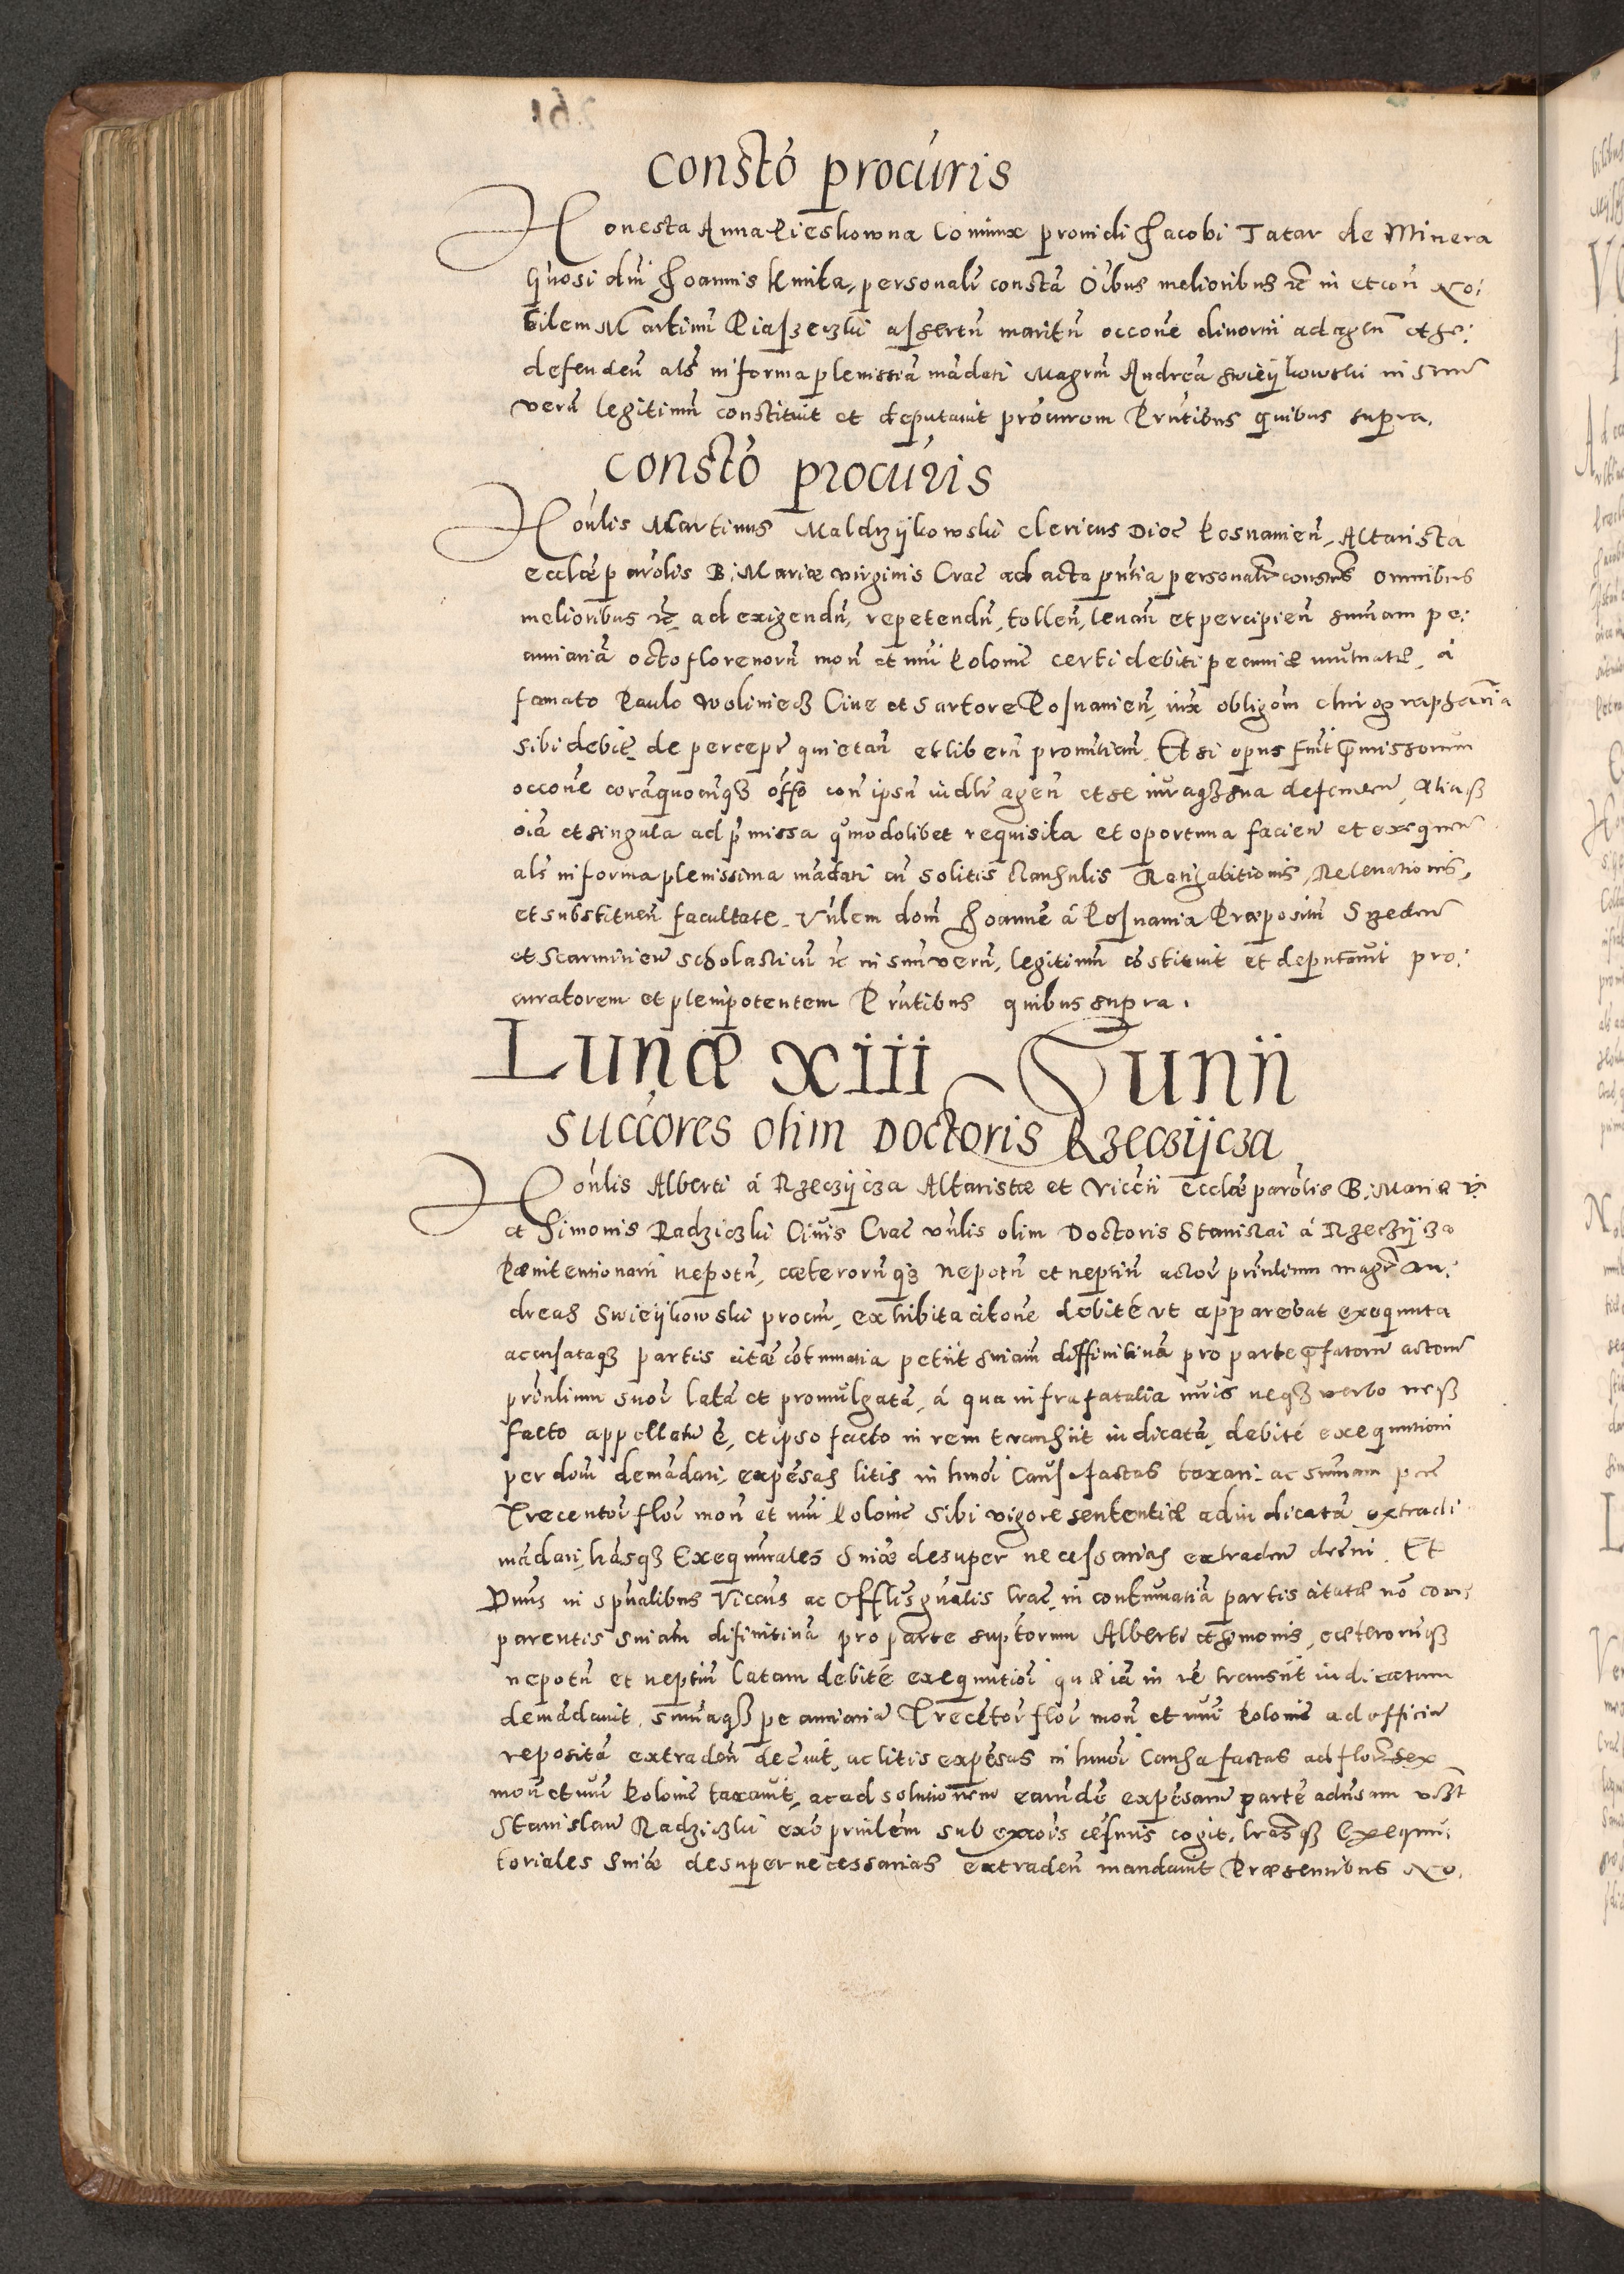 Constō procuris
Honesta Anna Pieskowna Coniunx prouidi Jacobi Tatar de Minera
Gnosi dnī Joannis Kmita, personalr̄ constā Oībus melioribus rc̄ in et con̄ No:
bilem Martinū Piaszeczki assertū maritū occone diuorții ad agen̄ et se:
defenden̄ als̄ in forma plenissiā mādati Magrm̄ Andreā Swieykowski in suū
verū legitimū constituit et deputauit procurom Prn̄tibus quibus supra.
Constō procuris
Honlis Martinus Maldrzykowski Clericus Dioc̄ Posnanien̄, Altarista
ecclæ parōlis B: Mariæ virginis Crac̄ ad acta prn̄tia personalr̄ constns̄ omnibus
melioribus rc̄, ad exigendū, repetendū, tollen̄, leuan̄ et percipien̄ summam pe:
cuniariā octo florenorū mon̄ et nūi Polonię certi debiti pecuniæ mutuatæ, à
famato Paulo Woliniecz Ciue et Sartore Posnanien̄, iux̄ obligom̄ chirographariā
sibi debitę, de percept̄ quietan̄ et liberū pronuntian̄. Et si opus fuīt p̄missorum
occone corā quocūqȝ offō con̄ ipsū iudlr̄ agen̄ et se iuraqȝ sua defenden̄, Aliaqȝ
oīa et singula ad p̄missa qm̄odolibet requisita et oportuna facien̄ et exequen̄
als̄ in forma plenissima mādati cū solitis clausulis Ratihabitionis, Releuationis,
et substituen̄ facultate. Vn̄lem dom̄ Joannē à Posnania Præpositū Szeden̄
et Scarmirien̄ scholasticū rc̄ in suū verū, legitimū cōstituit et deputauit pro:
curatorem et plenipotentem Prn̄tibus quibus supra.
Lunæ xiii Junii
Succōres olim Doctoris Rzeczycza
Honlis Alberti á Rzeczycza Altaristæ et Viceñ Ecclæ parōlis B: Mariæ V:
et Simonis Radziczki Ciuis Crac̄ vn̄lis olim Doctoris Stanislai á Rzeczycza
Pænitentionarii nepotū, cæterorūqȝ nepotū et neptiū actor̄ prin̄lium magr̄ An:
dreas Swieykowski procur̄, exhibita citone debitè vt apparebat exequuta
accusataqȝ partis citæ cōtumatia petiit sniam̄ diffinitiuā pro parte p̄fatorū actorū
prin̄lium suor̄ latā et promulgatā, á qua infra fatalia iuris neqȝ verbo neqȝ
facto appellatū ē, et ipso facto in rem transiit iudicatā, debitè exequutioni
per dom̄ demādari, expēsas litis in hm̄oi Causa factas taxari: ac summam pec̄
Trecentor̄ flor̄ mon̄ et nūi Polonię sibi vigore sententiæ adiudicatā extradi
mādari, lrāsqȝ Exequutales sniæ desuper necessarias extraden̄ decerni. Et
Dnus in spūalibus Vicc̄us ac Offlis gn̄alis Crac̄, in contumatiā partis citatæ nō com:
parentis sniam̄ difinitiuā pro parte suptorum Alberti et Simonis, cæterorūqȝ
nepotū et neptiū latam debitè exequutioī quæ iā in rē transiit iudicatam
demādauit, summāqȝ pecuniariā Trecētor̄ flor̄ mon̄ et nūi Polonię ad officiū
repositā extraden̄ decreuit, ac litis expēsas in hm̄oi Causa factas ad flor̄ sex
mon̄ et nūi Polonię taxauit, ac ad solutionem earundē expēsarū partē aduersam vcȝt
Stanislaū Radziczki exōs prin̄lem sub excōis cēsuris cogit, lrāsqȝ Exequu:
toriales sniæ desuper necessarias extraden̄ mandauit Præsentibus No.